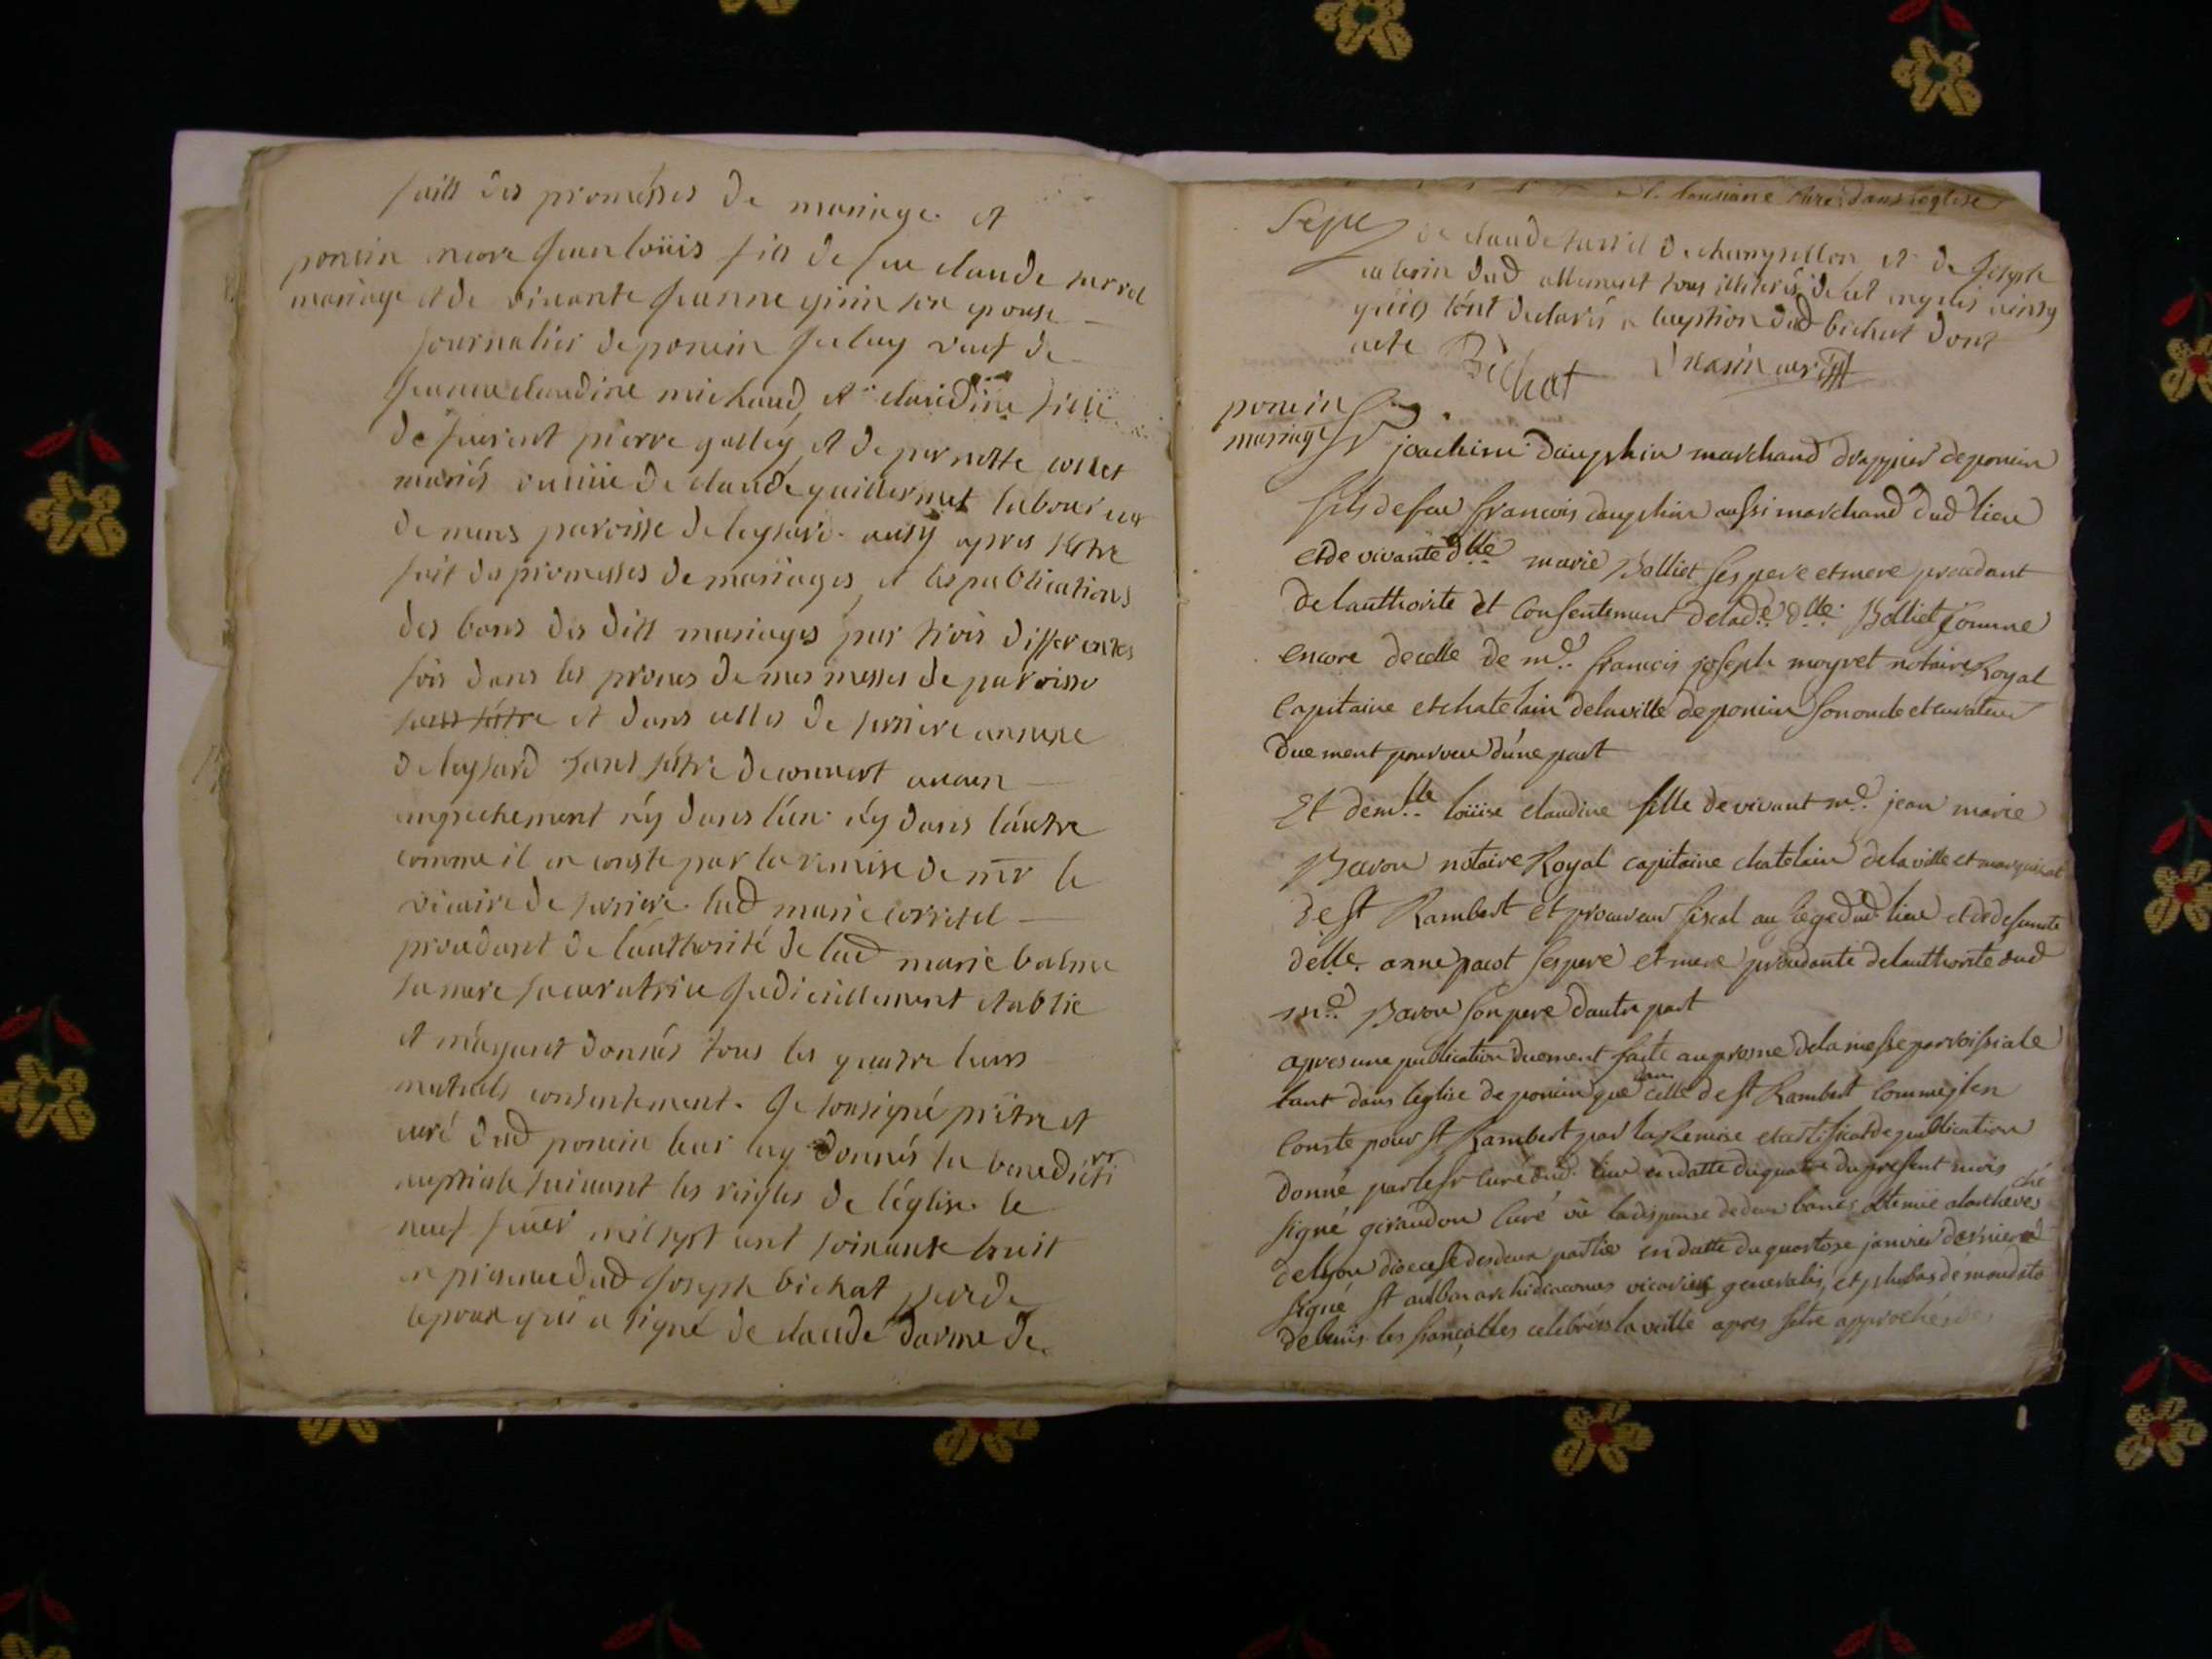 faits des promésses de mariage. et
poncin encore Jean loüis fils de feu claude
mariage et de vivante Jeanne son epouse
Journalier de poncin veuf de
Jeanne claudine michaud et claudine fille
de pierre galley et de pernette
mariés veuve de claude guillermet laboureur
de mens paroisse de leyssard. aussy apres s'être
fait des promesses de mariages, et les publications
des bans des dits mariages par trois differentes
fois dans les prones de mes messes de paroisse
et dans celles de serriere annexe
de leyssard sans s'être decouvert aucun
empechement n'y dans l'un n'y dans l'autre
comme il en conste par la remise de mr le
vicaire de serriere. lad marie
procedant de l'authorité de lad marie balme
sa mere sa curatrice Judiciellement etablie
et m'ayant donnés tous les quatre leurs
mutuels consentement. Je soussigné prêtre et
curé dud poncin leur ay donnés la benedicti
nuptiale suivant les reigles de l'église. le
neuf mil sept cent soixante huit
en presence dud Joseph bichat pere de
lepoux qui a signé de claude darme de
curé dans l'eglise
de claude de champillon et de Joseph
dud allement tous illiterés de ce enquis ainsy
qu'ils l'ont declaré a l'exception dud bichat dont
acte Bichat
poncin
mariage Sr joachim dauphin marchand drappier de poncin
fils de feu francois dauphin aussi marchand dud lieu
et de vivante dlle marie Bolliet ses pere et mere procedant
de lauthorite et consentement de lade dlle Bolliet comme
encore de celle de me francois joseph moyret notaire Royal
capitaine et chatelain de la ville de poncin son oncle et curateur
duement pourveu d'une part
Et demlle loüise claudine fille de vivant me jean marie
Bavou notaire Royal capitaine chatelain de la ville et marquisat
de st Rambert et procureur fiscal au siege dud lieu et de defunte
delle anne pacot ses pere et mere procedante de lauthorite dud
me Bavou son pere dautre part
apres une publication duement faite au prosne de la messe parroissiale
tant dans l'eglise de poncin que dans celle de st Rambert comme il en
conste pour st Rambert par la Remise et certificat de publication
donné par le sr curé dud. lieu en datte du quatre du present mois
signé giraudon curé vû la dispense de deux bancs obtenüe a larcheveché
de lyon diocese des deux parties en datte du quatorze janvier dernier
signé st aubin archidiaconus vicarius generalis, et plus bas de mandato
les fiançailles celebrées la veille apres s'etre approchés des